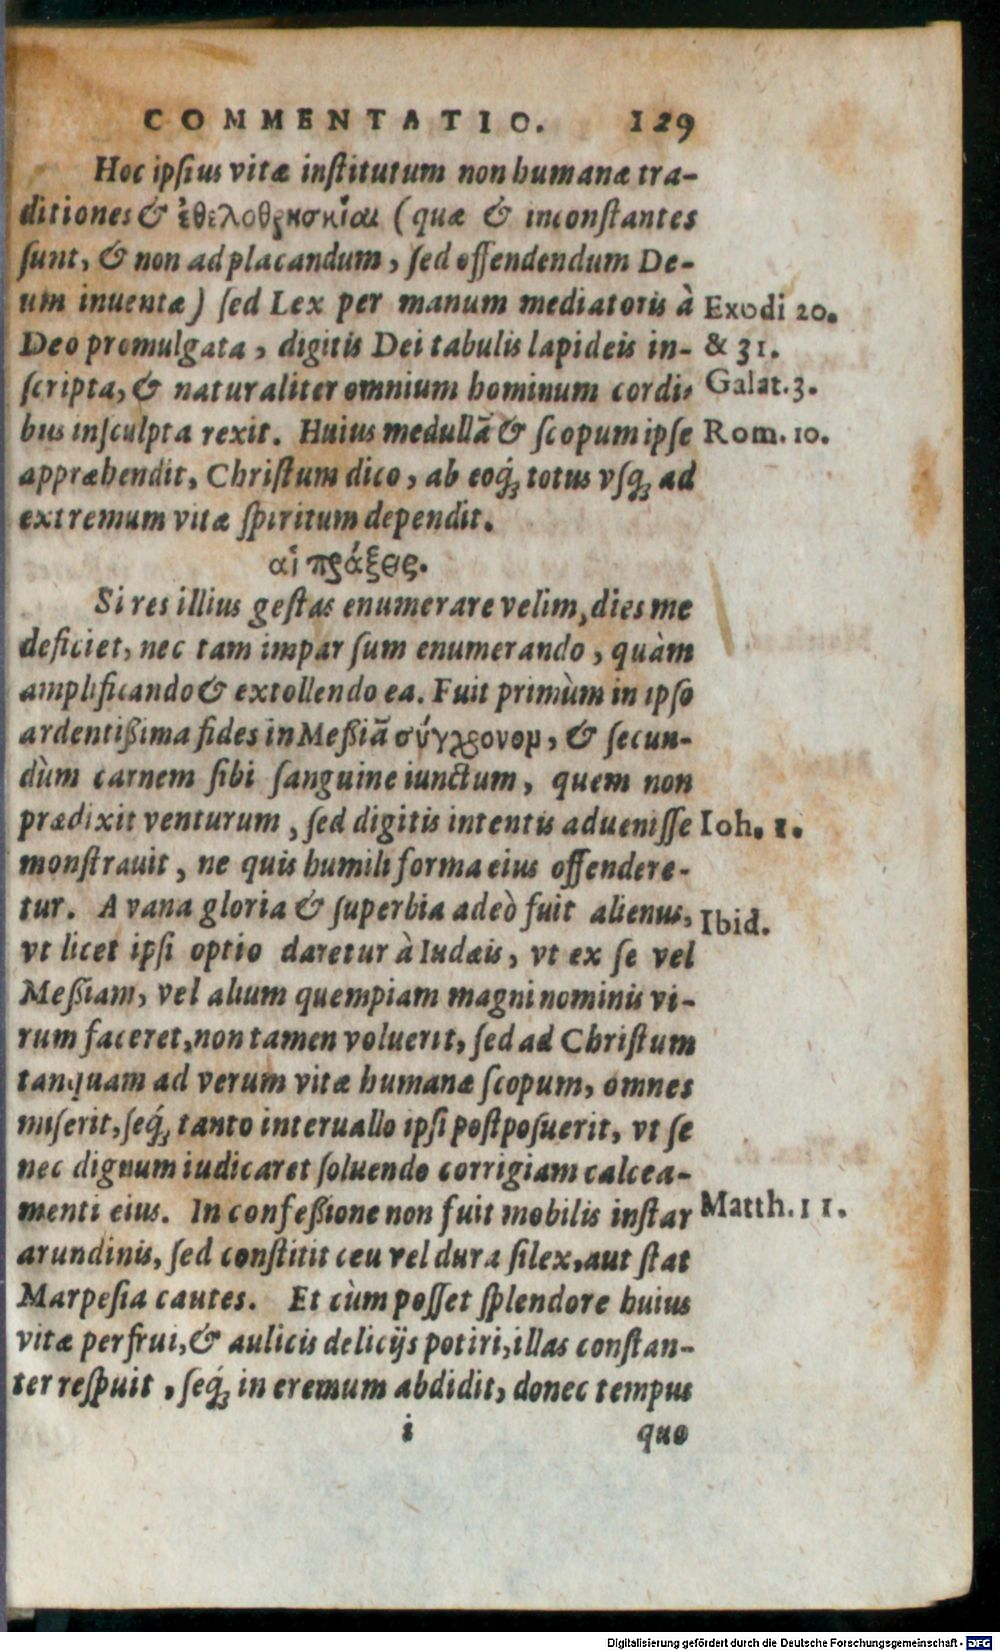 COMMENTATIO. 129
Hoc ipsius vitæ institutum non humanæ tra-
ditiones & ἐθελοθρησκίαι (quæ & inconstantes
sunt, & non ad placandum, sed offendendum De-
um inuentæ) sed Lex per manum mediatoris à
Exodi 20.
Deo promulgata, digitis Dei tabulis lapideis in-
& 31.
scripta, & naturaliter omnium hominum cordi-
Galat. 3.
bus insculpta rexit. Huius medullã & scopum ipse
Rom. 10.
appræhendit, Christum dico, ab eoq́; totus vsq; ad
extremum vitæ spiritum dependit.
αἱ πράξεις.
Si res illius gestas enumerare velim, dies me
deficiet, nec tam impar sum enumerando, quàm
amplificando & extollendo ea. Fuit primùm in ipso
ardentißima fides in Meßiã σύγχρονομ, & secun-
dùm carnem sibi sanguine iunctum, quem non
prædixit venturum, sed digitis intentis aduenisse
Ioh. 1.
monstrauit, ne quis humili forma eius offendere-
tur. A vana gloria & superbia adeò fuit alienus,
Ibid.
vt licet ipsi optio daretur à Iudæis, vt ex se vel
Meßiam, vel alium quempiam magni nominis vi-
rum faceret, non tamen voluerit, sed ad Christum
tanquam ad verum vitæ humanæ scopum, omnes
miserit, seq́; tanto interuallo ipsi postposuerit, vt se
nec dignum iudicaret soluendo corrigiam calcea-
menti eius. In confeßione non fuit mobilis instar
Matth. 11.
arundinis, sed constitit ceu vel dura silex, aut stat
Marpesia cautes. Et cùm posset splendore huius
vitæ perfrui, & aulicis delicijs potiri, illas constan-
ter respuit, seq́; in eremum abdidit, donec tempus
i quo
Digitalisierung gefördert durch die Deutsche Forschungsgemeinschaft - DFG